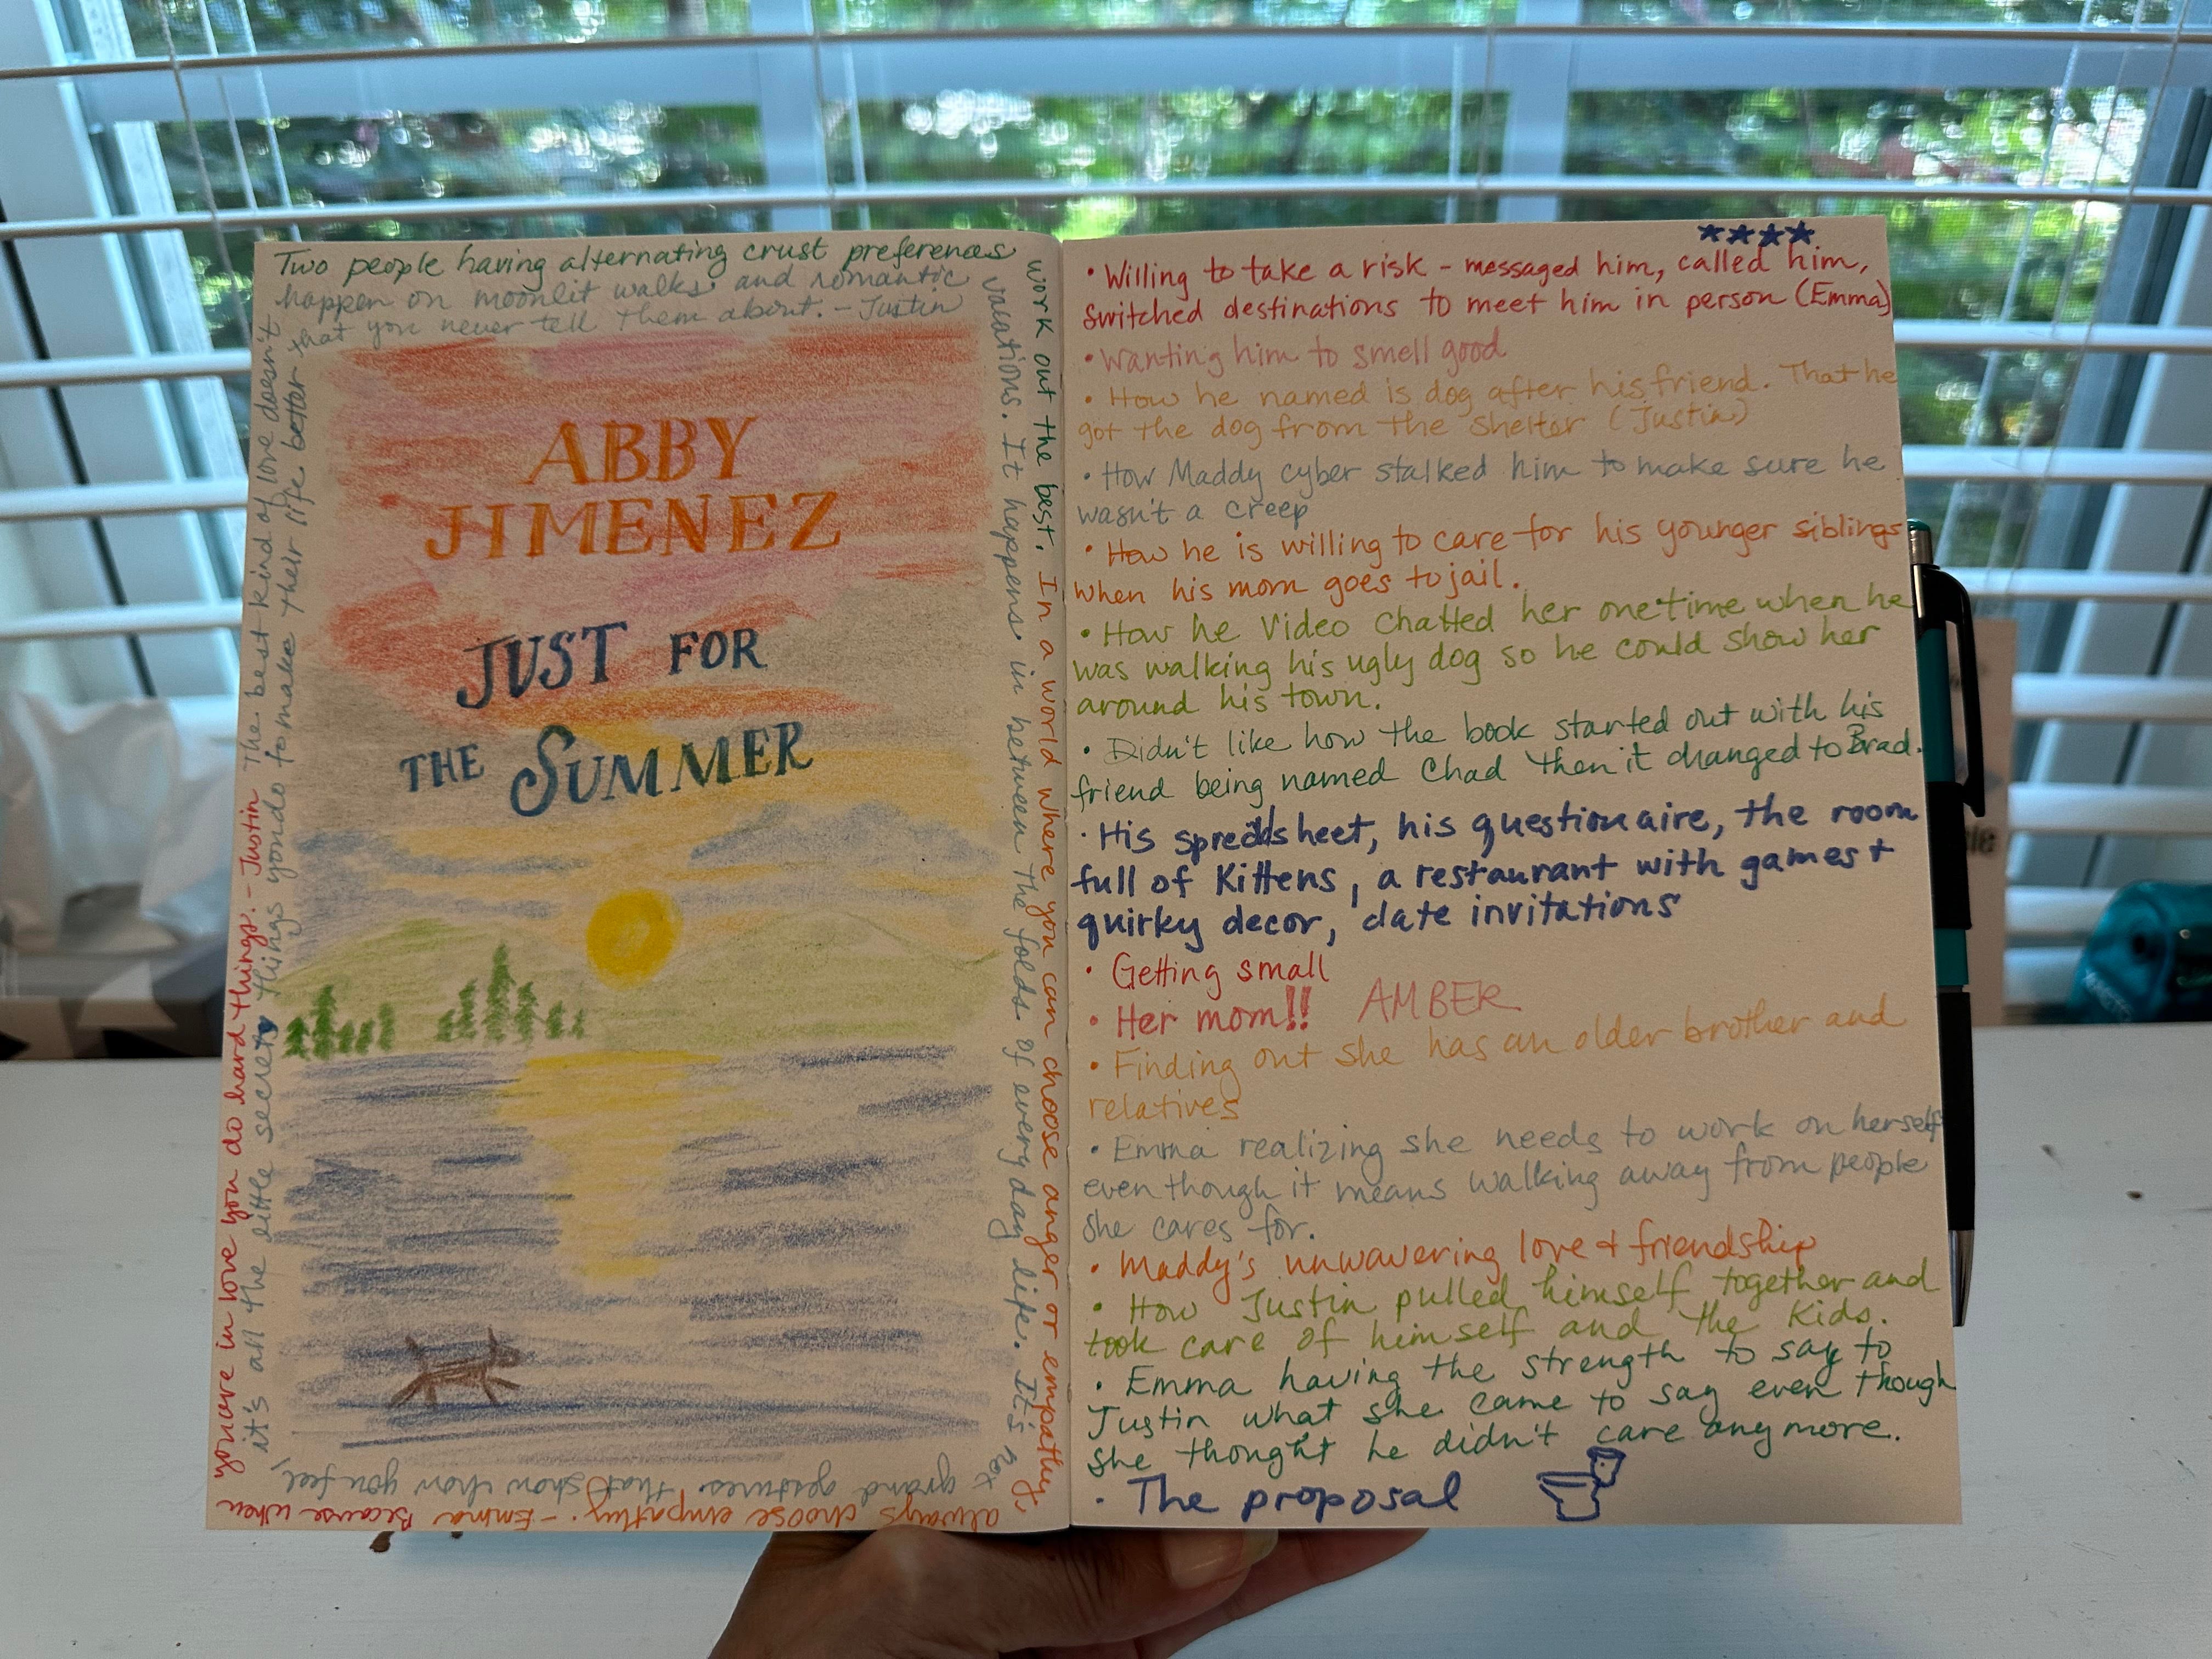 Two people having alternating crust preferences
work out the best. In a world where you can choose anger or empathy,
always choose empathy. - Emma Because when
you're in love you do hard things. - Justin The best kind of love doesn't
happen on moonlit walks and romantic
vacations. It happens in between the folds of every day life. It's not
grand gestures that show how you feel,
it's all the little secret things you do to make their life better
that you never tell them about. - Justin
ABBY
JIMENEZ
JUST FOR
THE SUMMER
****
• Willing to take a risk - messaged him, called him,
switched destinations to meet him in person (Emma)
• Wanting him to smell good
• How he named is dog after his friend. That he
got the dog from the shelter (Justin)
• How Maddy cyber stalked him to make sure he
wasn't a creep
• How he is willing to care for his younger siblings
when his mom goes to jail.
• How he video chatted her one time when he
was walking his ugly dog so he could show her
around his town.
• Didn't like how the book started out with his
friend being named Chad then it changed to Brad.
• His spreadsheet, his questionaire, the room
full of kittens, a restaurant with games +
quirky decor, date invitations
• Getting small
• Her mom!! AMBER
• Finding out she has an older brother and
relatives
• Emma realizing she needs to work on herself
even though it means walking away from people
she cares for.
• Maddy's unwavering love + friendship
• How Justin pulled himself together and
took care of himself and the kids.
• Emma having the strength to say to
Justin what she came to say even though
she thought he didn't care anymore.
• The proposal